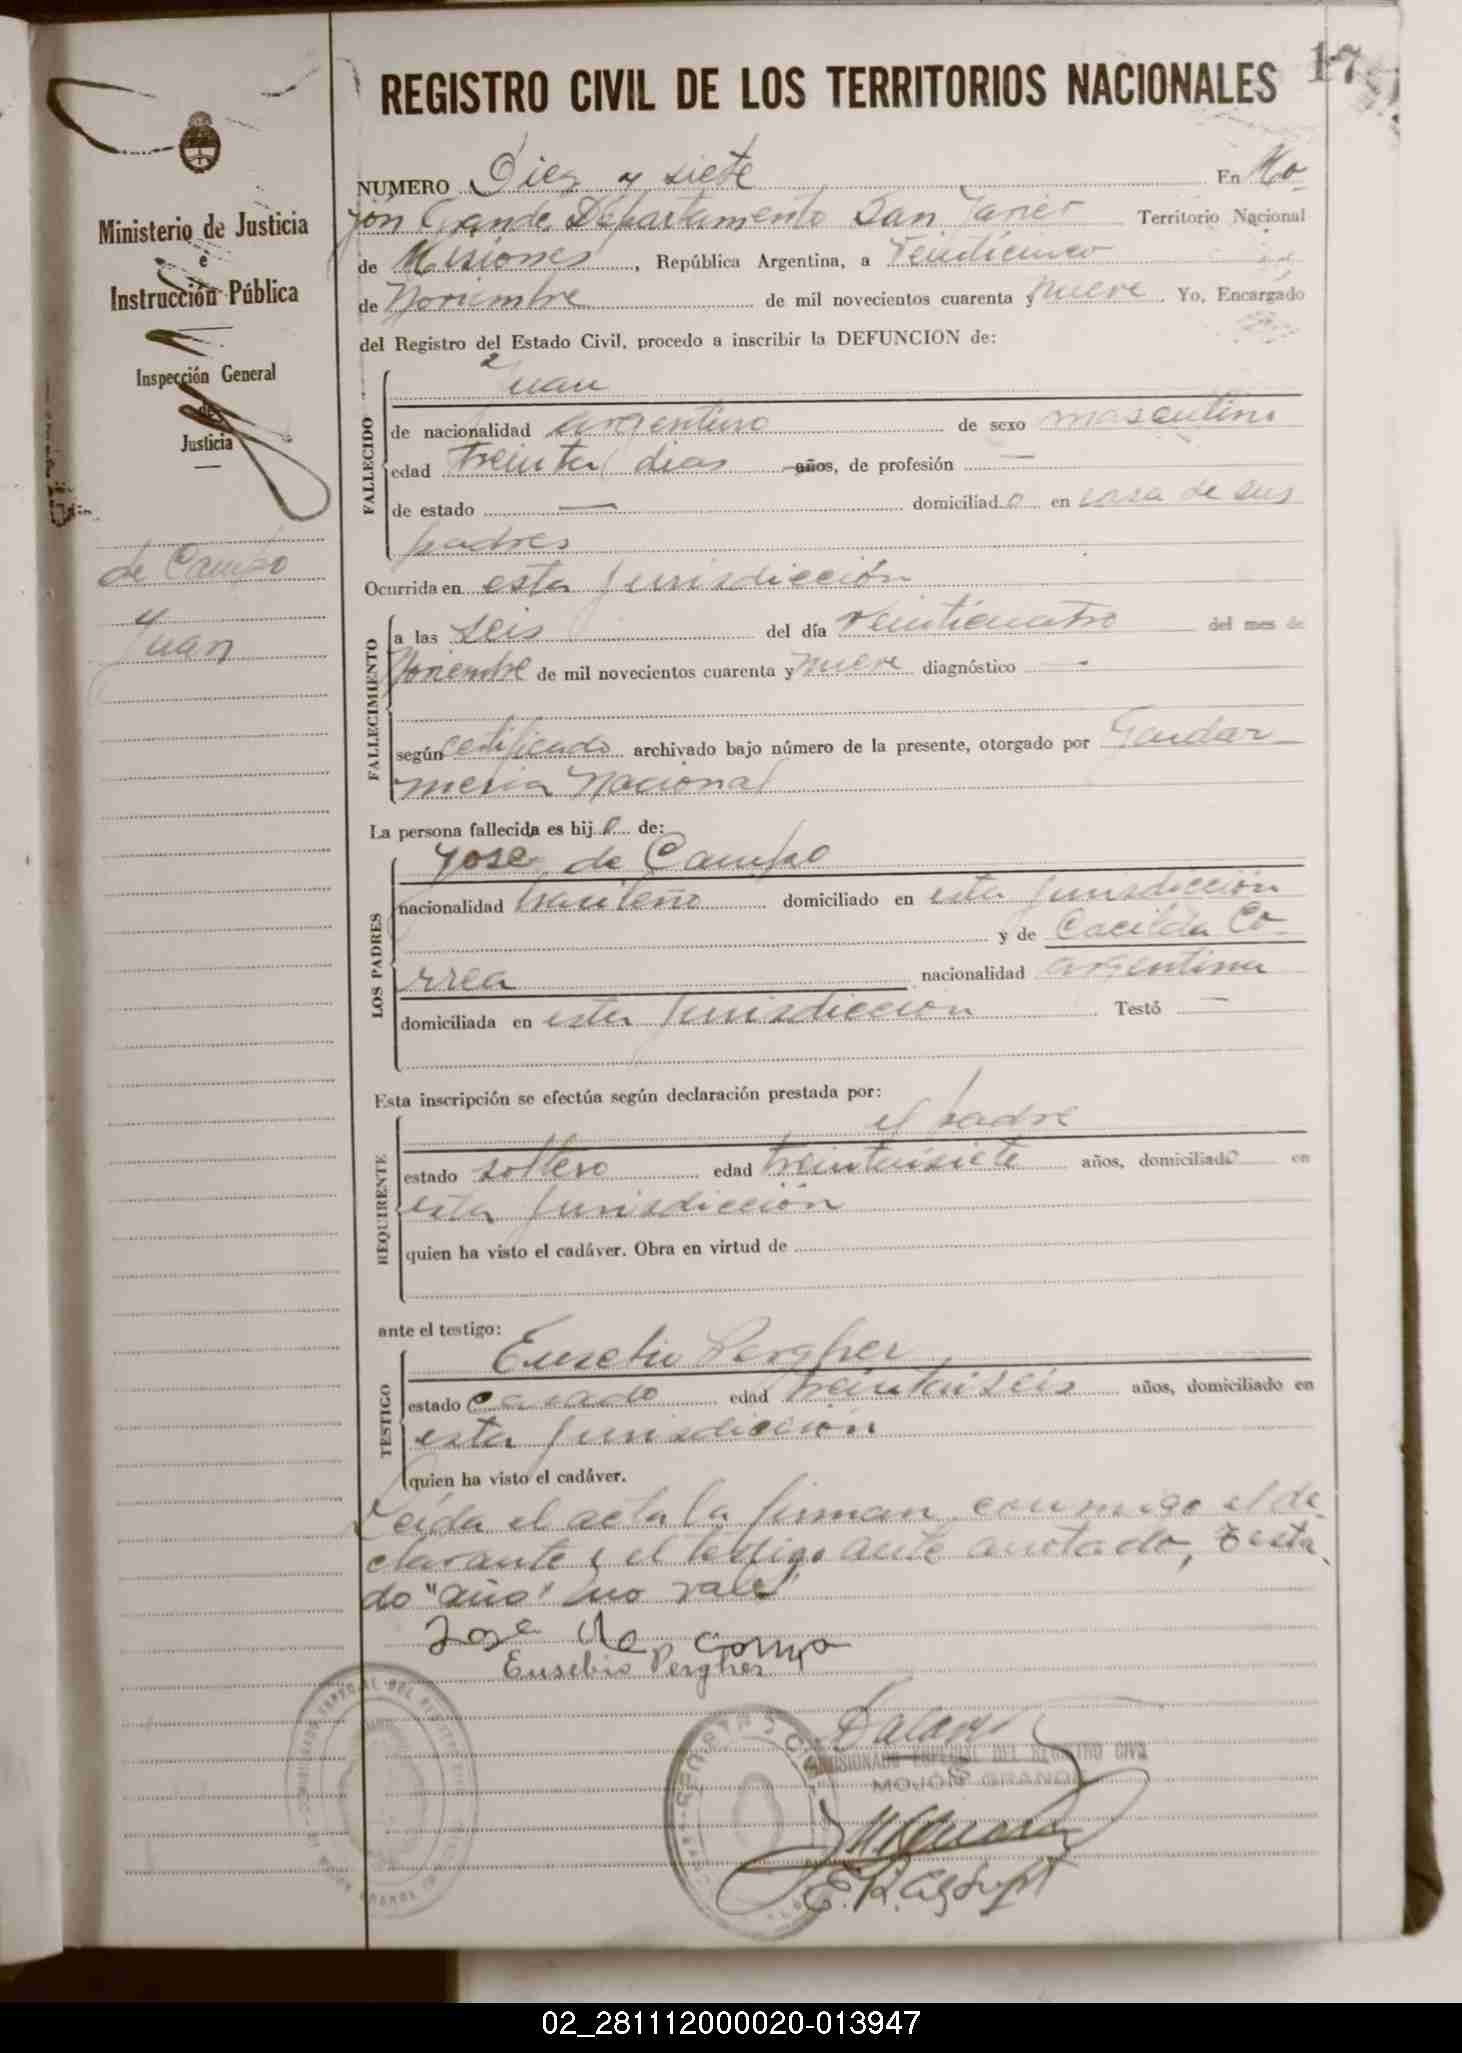 17
REGISTRO CIVIL DE LOS TERRITORIOS NACIONALES
Ministerio de Justicia
e
Instrucción Pública
Inspección General
de
Justicia
de Campo
Juan
NUMERO Diez y siete En Mo-
jón Grande, Departamento San Javier Territorio Nacional
de Misiones, República Argentina, a veinticinco
de Noviembre de mil novecientos cuarenta y nueve. Yo, Encargado
del Registro del Estado Civil, procedo a inscribir la DEFUNCION de:
FALLECIDO
Juan
de nacionalidad argentino de sexo masculino
edad treinta días años, de profesión —
de estado — domiciliado en casa de sus
padres
Ocurrida en esta jurisdicción
FALLECIMIENTO
a las seis del día veinticuatro del mes de
Noviembre de mil novecientos cuarenta y nueve diagnóstico -
según certificado archivado bajo número de la presente, otorgado por Gendar
meria Nacional
La persona fallecida es hijo de:
LOS PADRES
José de Campo
nacionalidad brasileño domiciliado en esta jurisdicción
y de Cacilda Co-
rrea nacionalidad argentina
domiciliada en esta jurisdicción. Testó —
Esta inscripción se efectúa según declaración prestada por:
REQUIRENTE
el padre
estado soltero edad treintaisiete años, domiciliado en
esta jurisdicción
quien ha visto el cadáver. Obra en virtud de
ante el testigo:
TESTIGO
Eusebio Pergher
estado casado edad treintaiseis años, domiciliado en
esta jurisdicción
quien ha visto el cadáver.
Leída el acta la firman conmigo el de-
clarante y el testigo ante anotado, Testa-
do "año" no vale
José de campo
Eusebio Pergher
COMISIONADO ESPECIAL DEL REGISTRO CIVIL
MOJON GRANDE
02_281112000020-013947